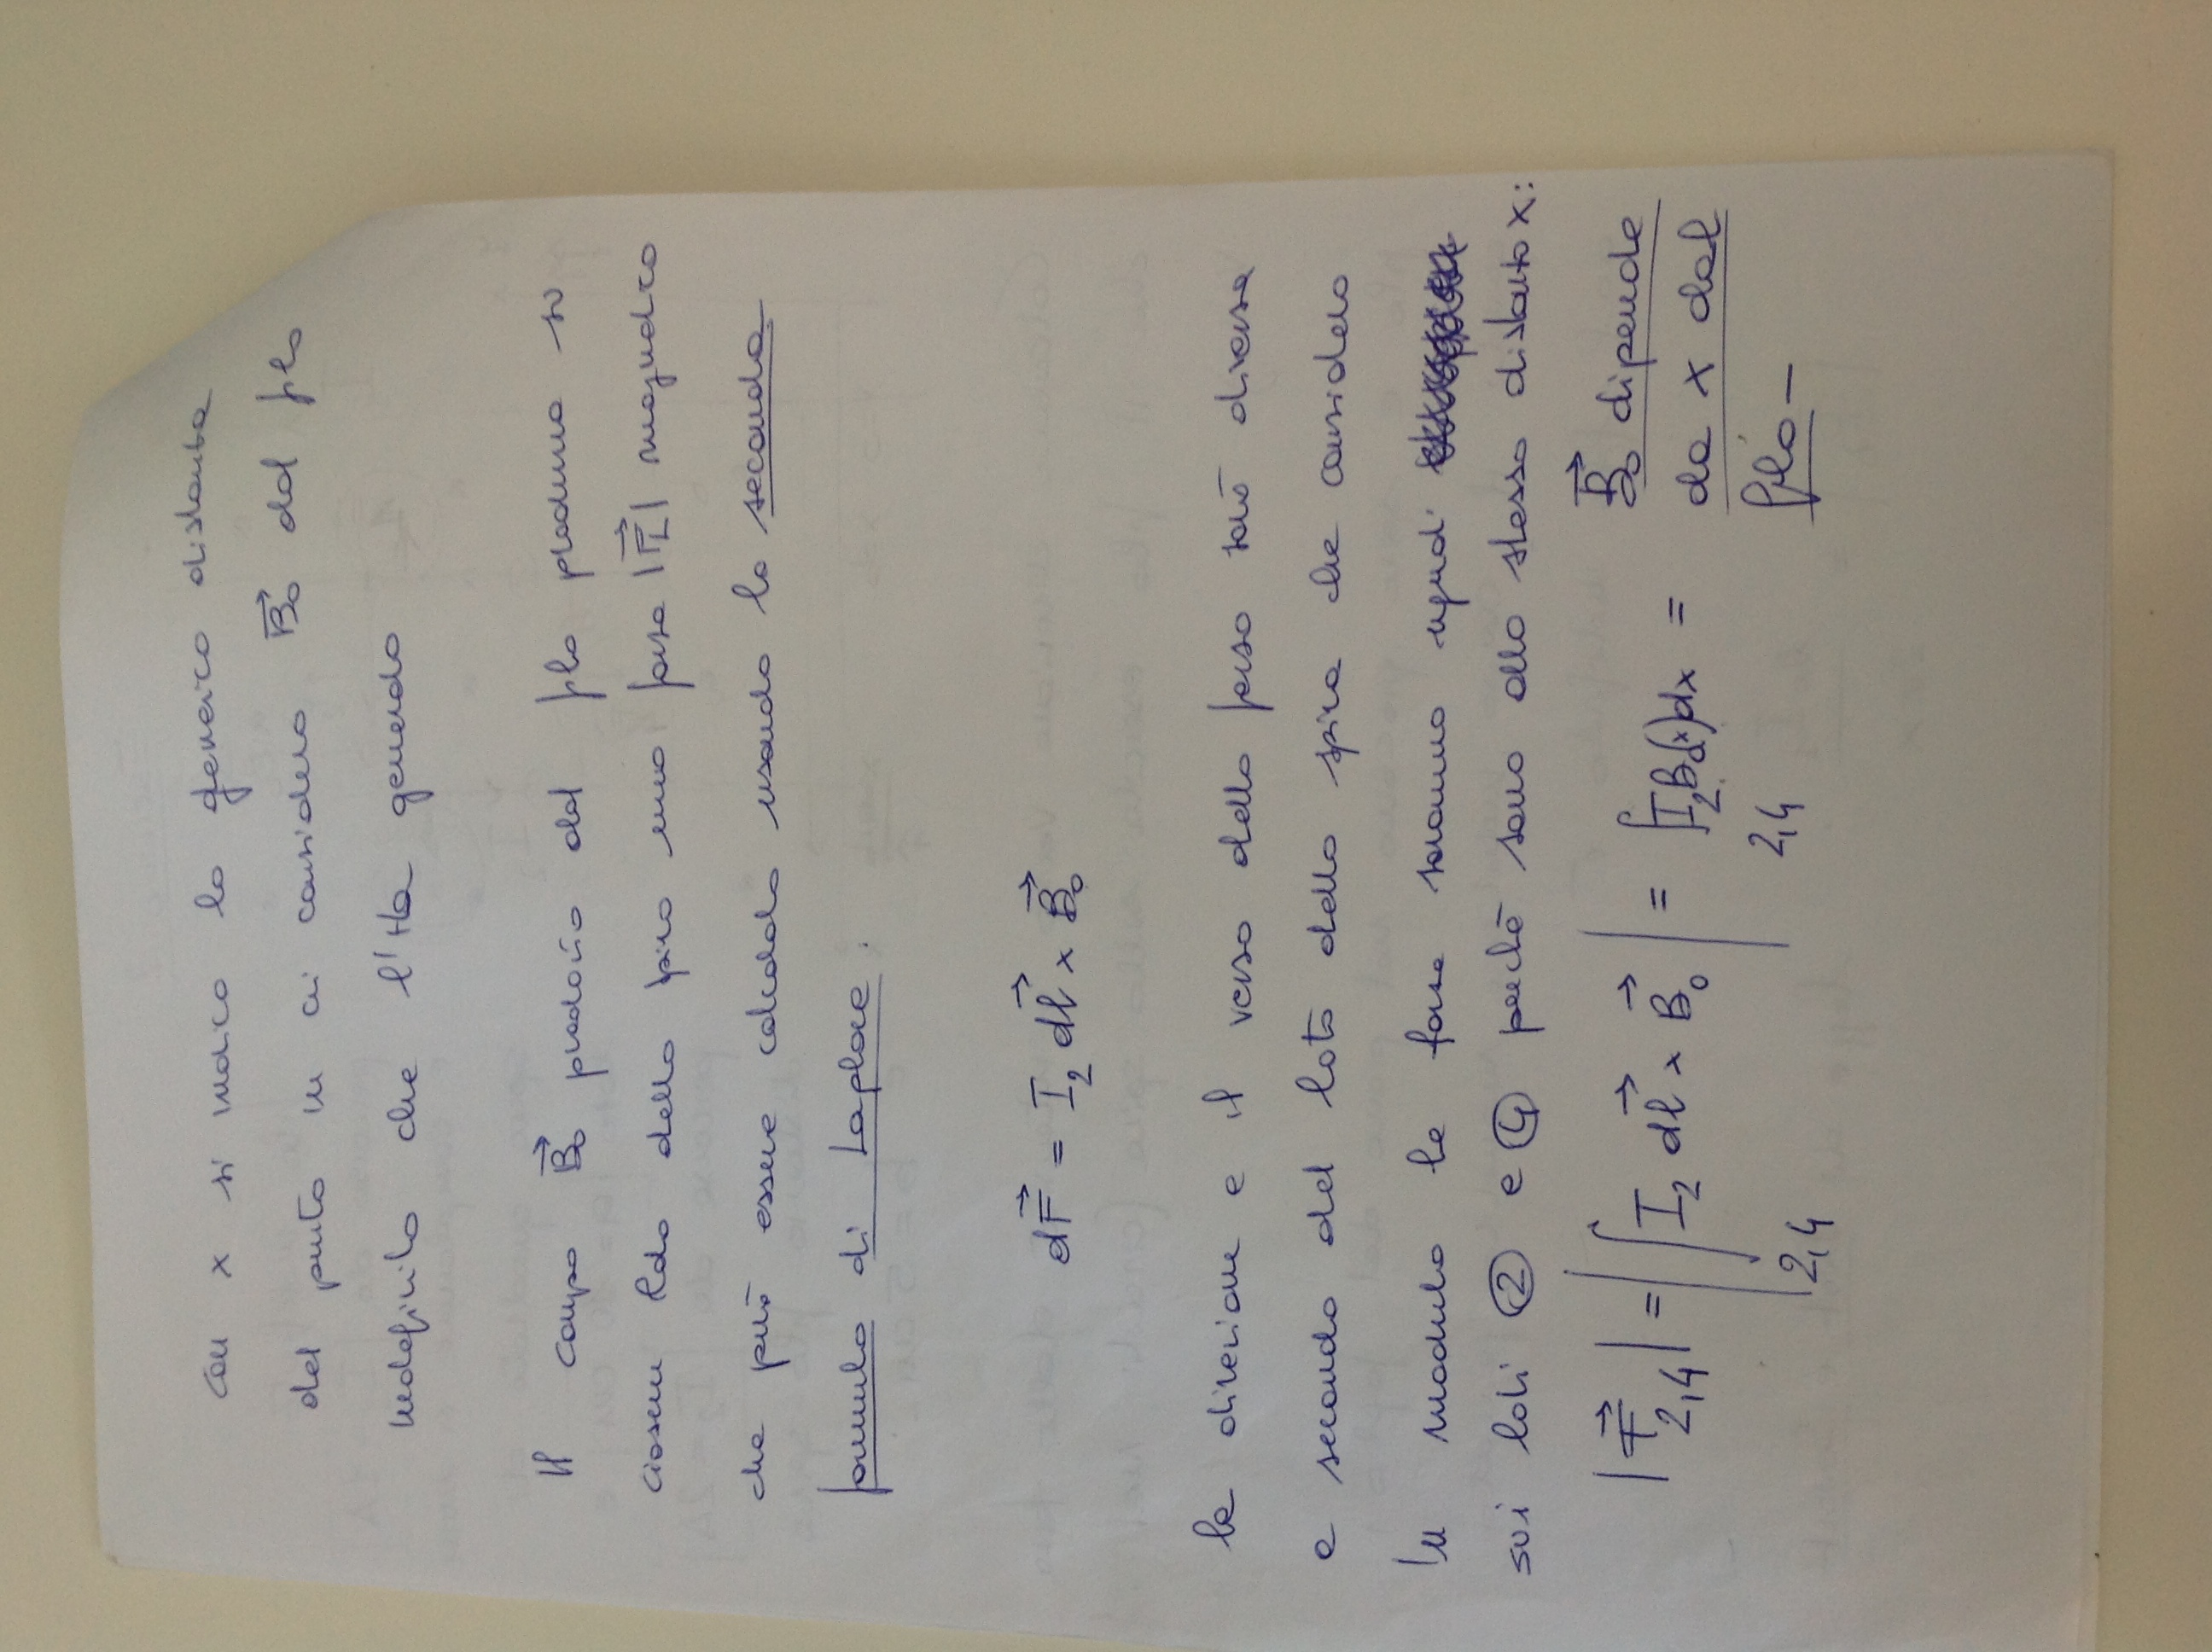 con x si indica la generica distanza
del punto in cui considero B⃗₀ dal filo
indefinito che l'ha generato
Il campo B⃗₀ prodotto dal filo produrrà su
ciascun lato della spira una forza |F⃗_L| magnetica
che può essere calcolata usando la seconda
formula di Laplace.
dF⃗ = I₂ dl⃗ × B⃗₀
la direzione e il verso della forza sarà diversa
a seconda del lato della spira che considero
In modulo le forze saranno uguali
sui lati ② e ④ perché sono alla stessa distanza x:
|F⃗₂,₄| = |∫₂,₄ I₂ dl⃗ × B⃗₀| = ∫₂,₄ I₂B₀(x)dx =
B⃗₀ dipende
da x dal
filo –